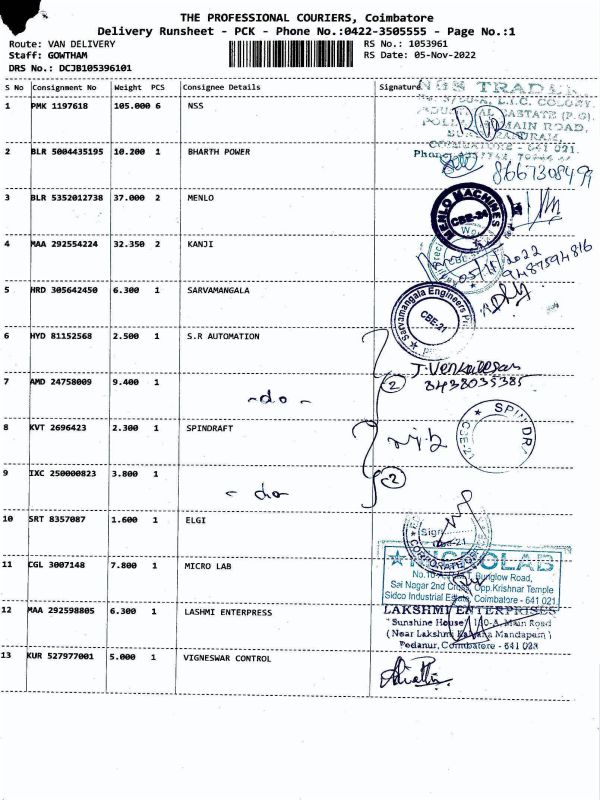 THE PROFESSIONAL COURIERS, Coimbatore
Delivery Runsheet - PCK - Phone No.:0422-3505555 - Page No.:1
Route: VAN DELIVERY RS No.: 1053961
Staff: GOWTHAM RS Date: 05-Nov-2022
DRS No.: DCJB105396101
S No Consignment No Weight PCS Consignee Details Signature
NGS TRADER
L.I.C. COLONY,
1 PMK 1197618 105.000 6 NSS
ESTATE (P.O)
MAIN ROAD,
COIMBATORE - 641 021.
Phone
2 BLR 5004435195 10.200 1 BHARTH POWER
8667308499
3 BLR 5352012738 37.000 2 MENLO
MENLO MACHINES
CBE-24
4 MAA 292554224 32.350 2 KANJI
05/11/2022
9487594816
5 HRD 305642450 6.300 1 SARVAMANGALA
Sarvamangala Engineers
CBE-21
6 HYD 81152568 2.500 1 S.R AUTOMATION
J. Venkatesan
8438035385
7 AMD 24758009 9.400 1
2
- do -
8 KVT 2696423 2.300 1 SPINDRAFT
SPINDR
CBE-21
9 IXC 250000823 3.800 1
2
- do
10 SRT 8357087 1.600 1 ELGI
Sign
CORPORATE
11 CGL 3007148 7.800 1 MICRO LAB
Bunglow Road,
Sai Nagar 2nd Cross, Opp.Krishnar Temple
Sidco Industrial Estate, Coimbatore - 641 021
12 MAA 292598805 6.300 1 LASHMI ENTERPRESS
LAKSHMI ENTERPRISES
"Sunshine House" 100-A, Main Road
(Near Lakshmi Kalyana Mandapam)
Podanur, Coimbatore - 641 023
13 KUR 527977001 5.000 1 VIGNESWAR CONTROL